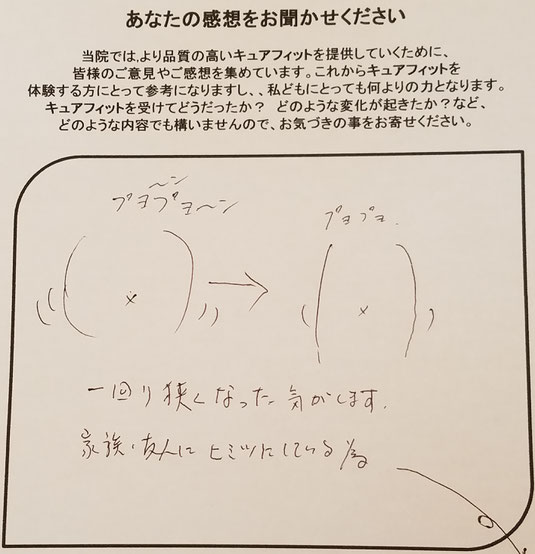 あなたの感想をお聞かせください
当院では,より品質の高いキュアフィットを提供していくために、
皆様のご意見やご感想を集めています。これからキュアフィットを
体験する方にとって参考になりますし、、私どもにとっても何よりの力となります。
キュアフィットを受けてどうだったか？ どのような変化が起きたか？など、
どのような内容でも構いませんので、お気づきの事をお寄せください。
～ン
ブヨブヨ～ン
ブヨブヨ.
一回り狭くなった気がします.
家族・友人にヒミツにしている為